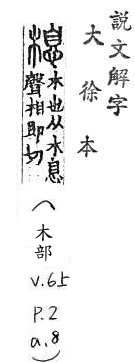 說文解字
大徐本
㮩木也从木息
聲相即切
(木部
V.65
P.2
a.8)